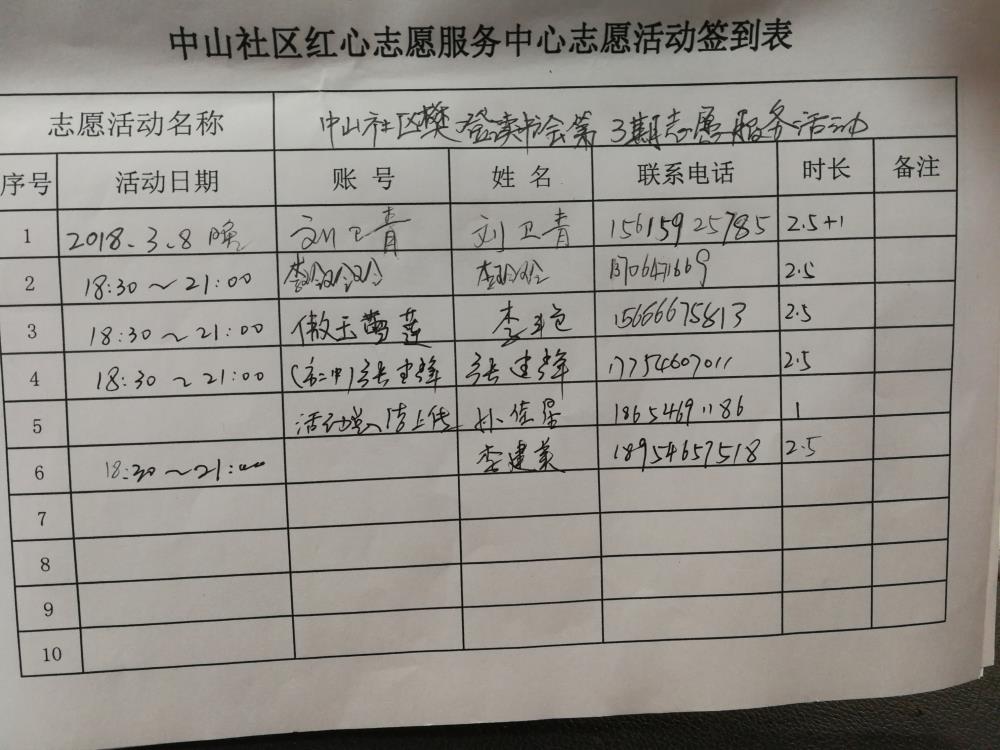 中山社区红心志愿服务中心志愿活动签到表
志愿活动名称 中山社区樊登读书会第3期志愿服务活动
序号 活动日期 账号 姓名 联系电话 时长 备注
1 2018.3.8晚 刘卫青 刘卫青 15615925785 2.5+1
2 18:30~21:00 李玲玲 2.5
3 18:30~21:00 傲玉雪莲 李 15666675813 2.5
4 18:30~21:00 张建 张建 17754607011 2.5
5 活动 上传 孙佳 18654691186 1
6 18:30~21:00 李建美 18954657518 2.5
7
8
9
10